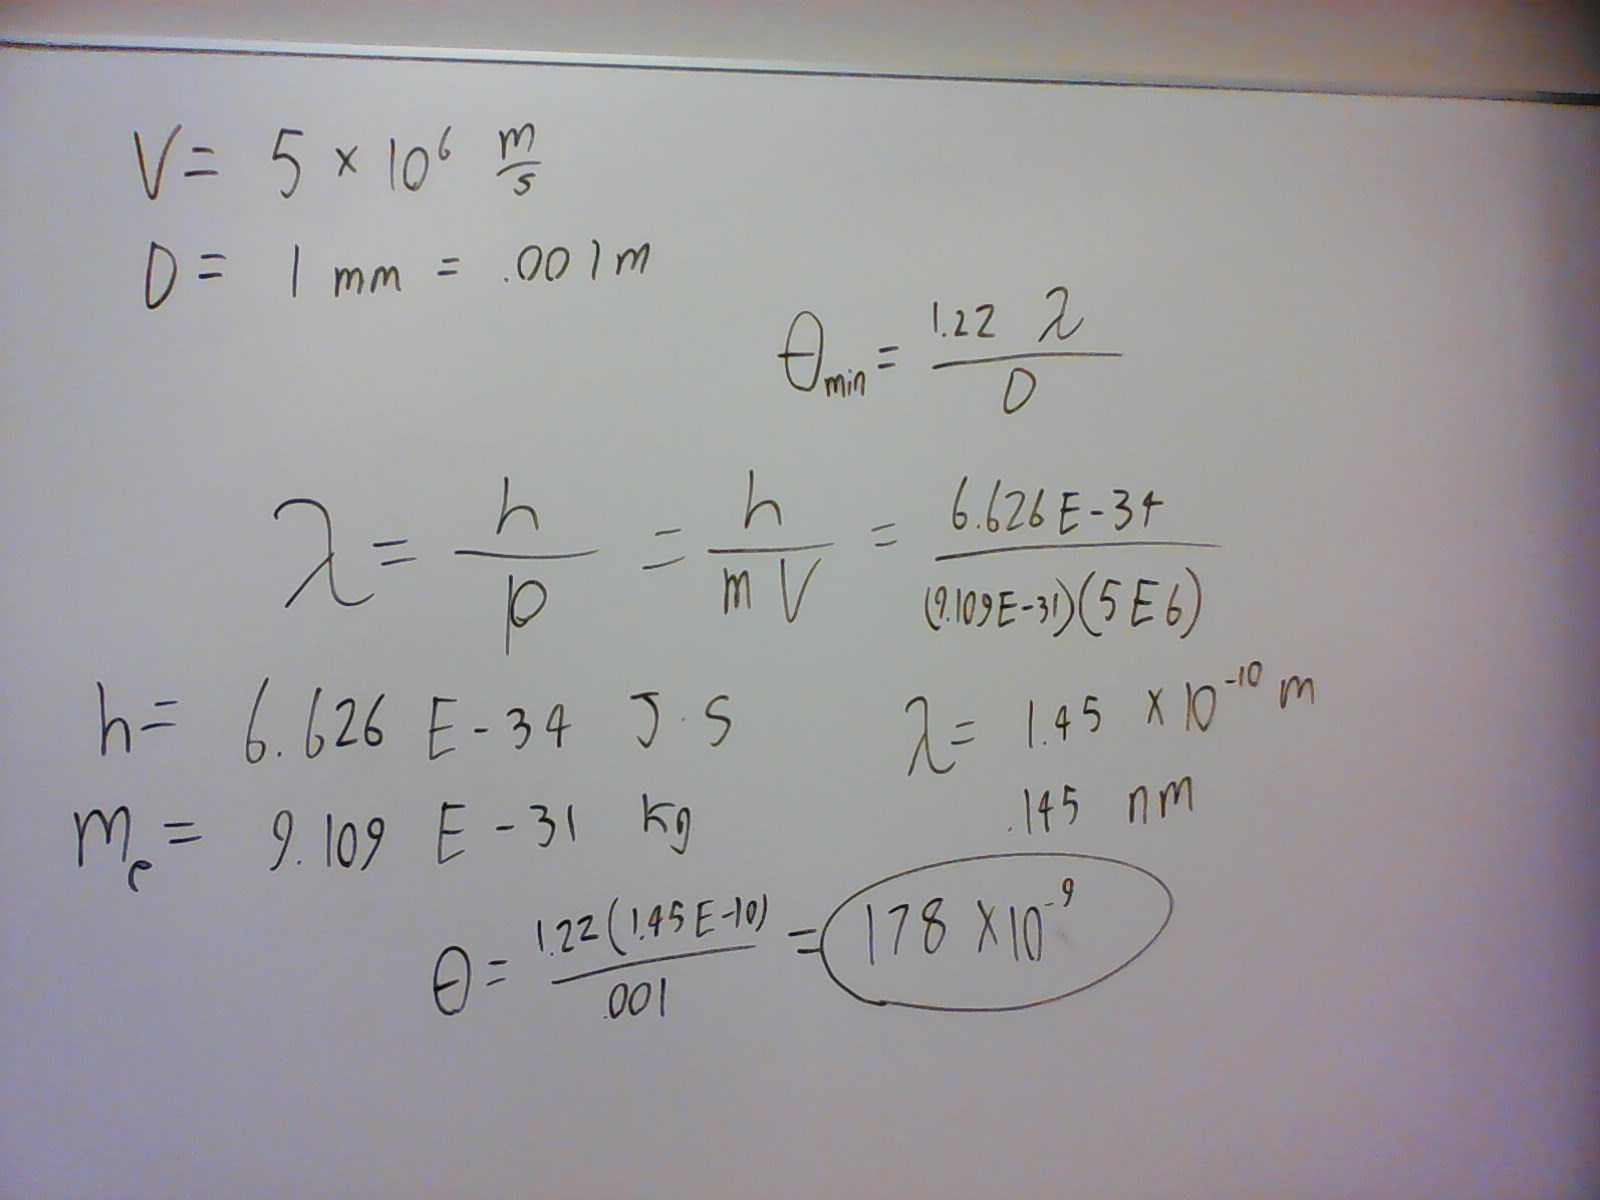 V = 5 × 10⁶ m/s
D = 1 mm = .001 m
θmin = 1.22 λ / D
λ = h / p = h / m V = 6.626 E-34 / (9.109E-31)(5E6)
h = 6.626 E-34 J·S
λ = 1.45 × 10⁻¹⁰ m
.145 nm
me = 9.109 E-31 kg
θ = 1.22(1.45E-10) / .001 = 178 × 10⁻⁹